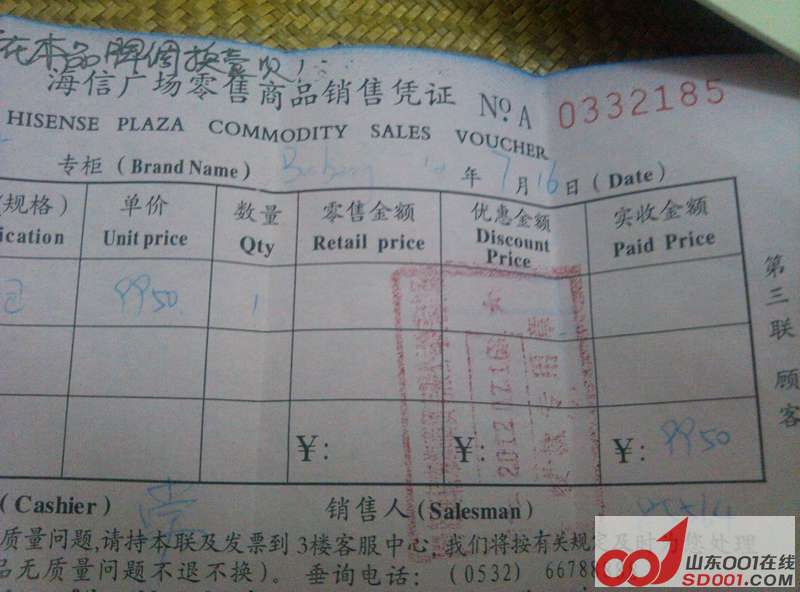 在本品牌调换壹次,
海信广场零售商品销售凭证 No A 0332185
HISENSE PLAZA COMMODITY SALES VOUCHER
专柜 (Brand Name) 年 7 月 16 日 (Date)
规格) 单价 数量 零售金额 优惠金额 实收金额
ication Unit price Qty Retail price Discount Price Paid Price
9950 1
2012.07.16
¥: ¥: ¥: 9950
第三联 顾客
(Cashier) 销售人 (Salesman)
质量问题,请持本联及发票到3楼客服中心,我们将按有关规定及时为您处理
品无质量问题不退不换)。 垂询电话: (0532) 66788
山东001在线
SD001.COM